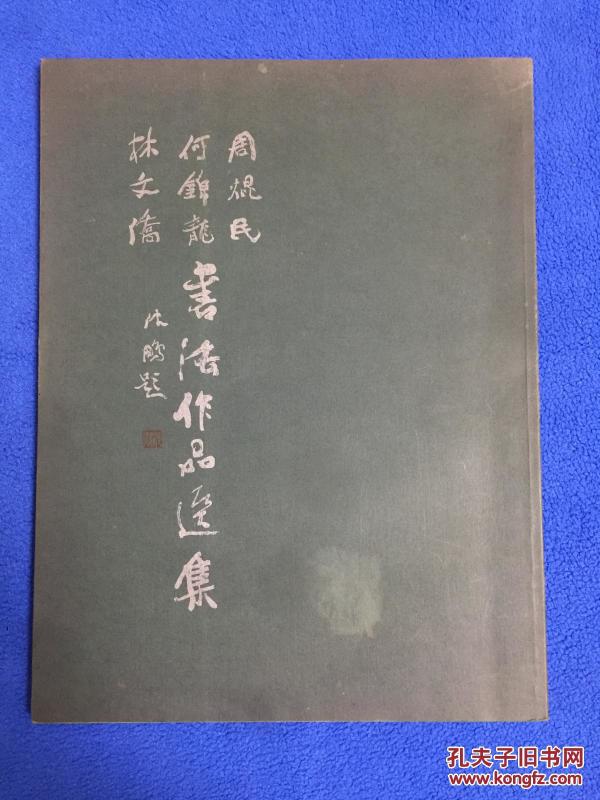 周焜民
何錦龍
林文僑
書法作品選集
沈鵬題
孔夫子旧书网
www.kongfz.com